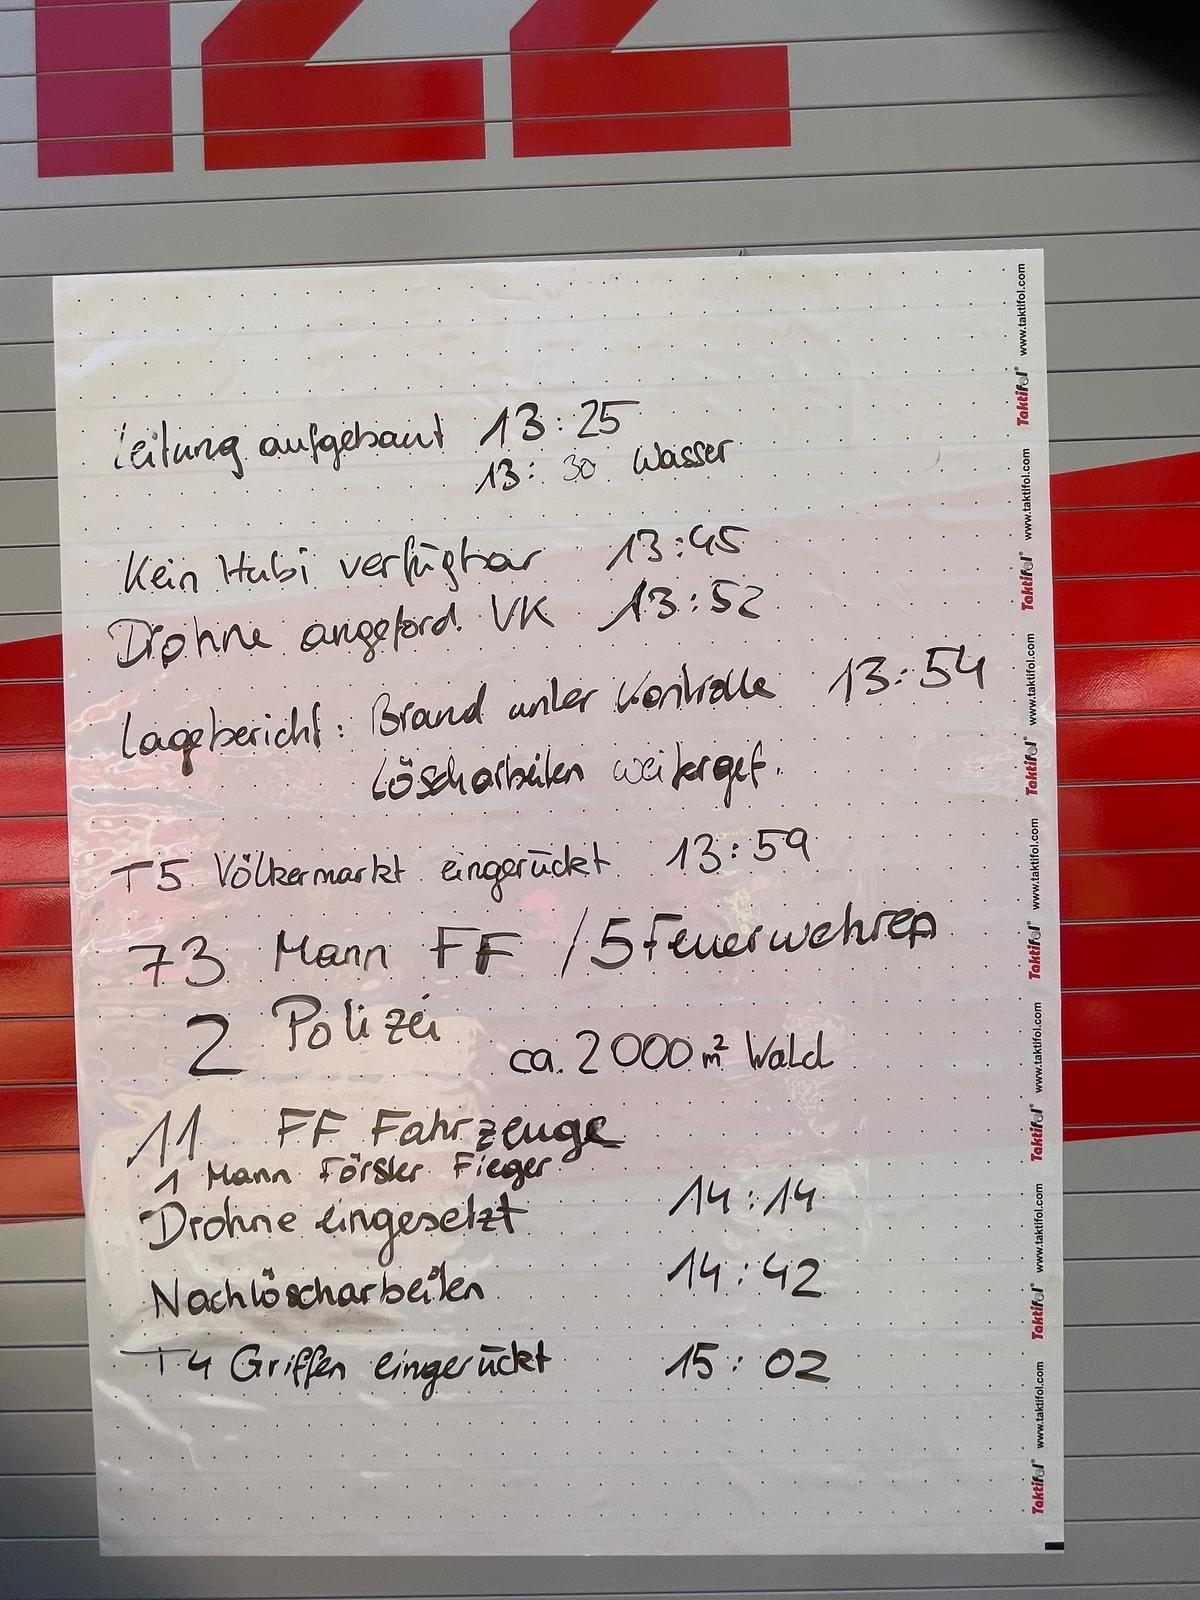 122
Leitung aufgebaut 13:25
13:30 Wasser
Kein Hubi verfügbar 13:45
Drohne angeford. VK 13:52
Lagebericht: Brand unter Kontrolle 13:54
Löscharbeiten weiterget.
T5 Völkermarkt eingerückt 13:59
73 Mann FF / 5 Feuerwehren
2 Polizei
ca. 2000 m² Wald
11 FF Fahrzeuge
1 Mann Förster Fieger
Drohne eingesetzt 14:14
Nachlöscharbeiten 14:42
T4 Griffen eingerückt 15:02
Taktifol® www.taktifol.com
Taktifol® www.taktifol.com
Taktifol® www.taktifol.com
Taktifol® www.taktifol.com
Taktifol® www.taktifol.com
Taktifol® www.taktifol.com
Taktifol® www.taktifol.com